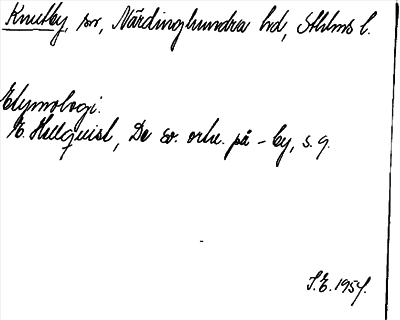 Knutby, sn, Närdinghundra hd, Sthlms l.
Etymologi.
E. Hellquist, De sv. ortn. på -by, s. 9.
S.E. 1954.